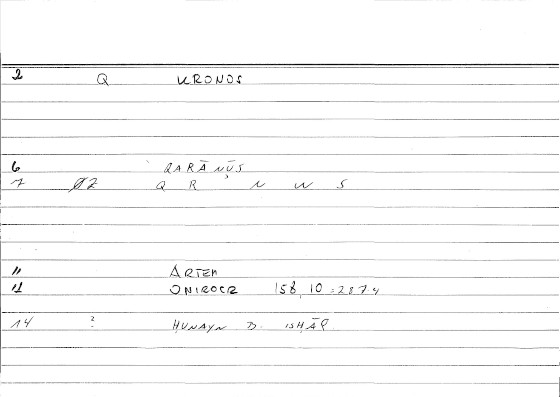 2 Q KRONOS
6 QARĀNŪS
7 07 Q R N W S
11 ARTEM
12 ONIROCR 158,10 = 287.4
14 ? HUNAYN B. ISHĀQ